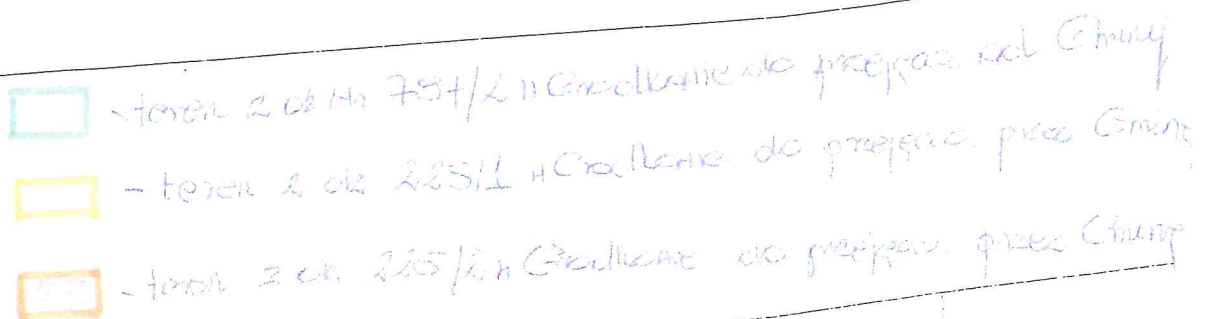 - teren z dz Nr 797/2 w Gródkowie do przejęcia od Gminy
- teren z dz 225/1 w Gródkowie do przejęcia przez Gminę
- teren z dz 225/2 w Gródkowie do przejęcia przez Gminę